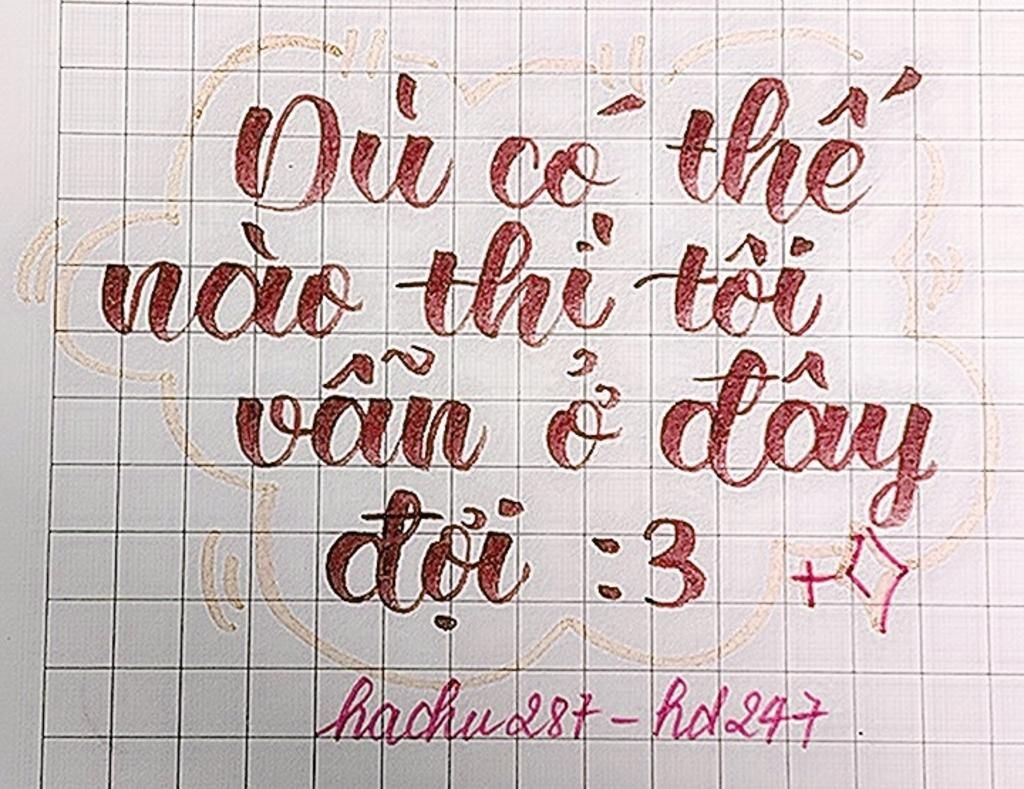 Dù có thế
nào thì tôi
vẫn ở đây
đợi :3
hachu287 - hd247